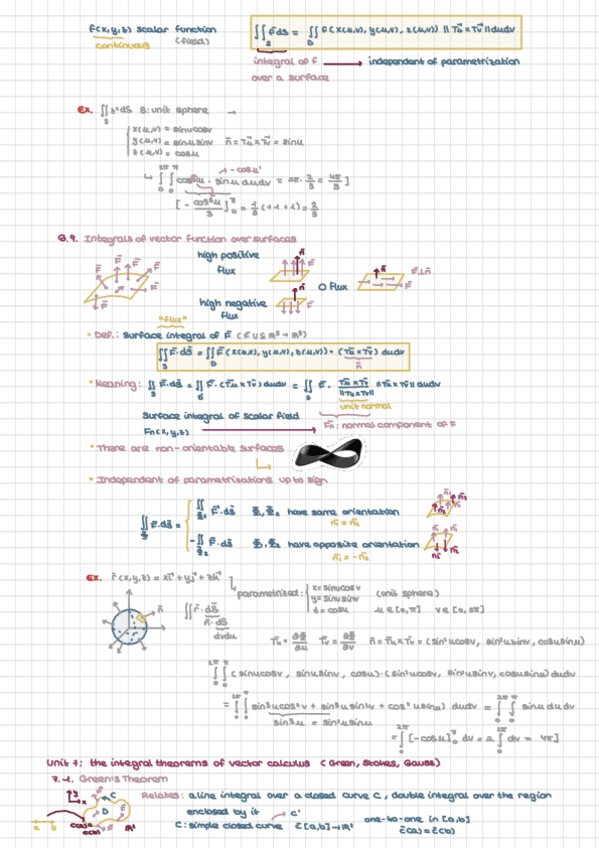 f(x,y,z) scalar function
continuous (field)
∬_S F dS = ∬_D f(x(u,v), y(u,v), z(u,v)) ||Tu × Tv|| dudv
integral of f → independent of parametrization
over a surface
Ex. ∬_S z² dS S: unit sphere →
x(u,v) = sinucosv
y(u,v) = sinusinv n̄ = Tu × Tv = sinu
z(u,v) = cosu
6.9. Integrals of vector function over surfaces
high positive
flux
0 flux F⊥n̄
high negative
flux
"flux"
• Def.: Surface integral of F̄ (F: U ⊆ ℝ³ → ℝ³)
∬_S F·dS = ∬_D F(x(u,v), y(u,v), z(u,v)) · (Tu × Tv) dudv
n̄
• Meaning: ∬_S F·dS = ∬_D F·(Tu × Tv) dudv = ∬_S F · (Tu × Tv)/||Tu × Tv|| ||Tu × Tv|| dudv
unit normal
Surface integral of scalar field
Fn(x,y,z) → Fn: normal component of F
• There are non-orientable surfaces
• Independent of parametrizations up to sign
∬_Φ F·dS = ∬_Φ₂ F·dS Φ₁,Φ₂ have same orientation
n̄₁ = n̄₂
-∬_Φ₂ F·dS Φ₁,Φ₂ have opposite orientation
n̄₁ = -n̄₂
Ex. r̄(x,y,z) = xi + yj + zk
parametrized: x = sinucosv (unit sphere)
y = sinusinv
z = cosu u ∈ [0,π] v ∈ [0,2π]
∬ r̄·dS
n̄·dS
dvdu
Tu = ∂Φ/∂u Tv = ∂Φ/∂v n̄ = Tu × Tv = (sin²ucosv, sin²usinv, cosusinu)
∫₀^2π ∫₀^π (sinucosv, sinusinv, cosu)·(sin²ucosv, sin²usinv, cosusinu) dudv
= ∫₀^2π ∫₀^π sin³ucos²v + sin³usin²v + cos²usinu) dudv = ∫₀^2π ∫₀^π sinu dudv
sin³u = sin²usinu
= ∫₀^2π [-cosu]₀^π dv = 2 ∫₀^2π dv = 4π]
Unit 7: the integral theorems of vector calculus (Green, Stokes, Gauss)
7.1. Green's Theorem
Relates: a line integral over a closed curve C, double integral over the region
enclosed by it c'
C: simple closed curve c̄[a,b] → ℝ² one-to-one in [a,b]
c̄(a) = c̄(b)